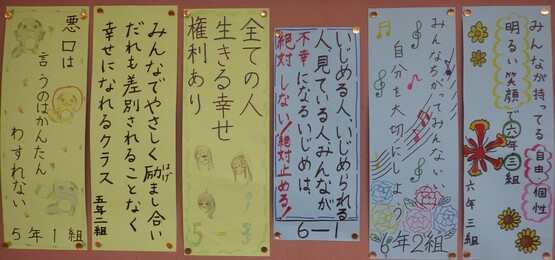 悪口は
言うのはかんたん
わすれない
5年1組
みんなでやさしく励まし合い
はげ
だれも差別されることなく
幸せになれるクラス
五年二組
全ての人
生きる幸せ
権利あり
5-3
いじめる人、いじめられる
人、見ている人、みんなが
不幸になるいじめは、
絶対しない!絶対止める!
6-1
みんなちがってみんないい
自分を大切にしよう
6年2組
みんなが持ってる自由・個性
明るい笑顔で六年三組
六年三組